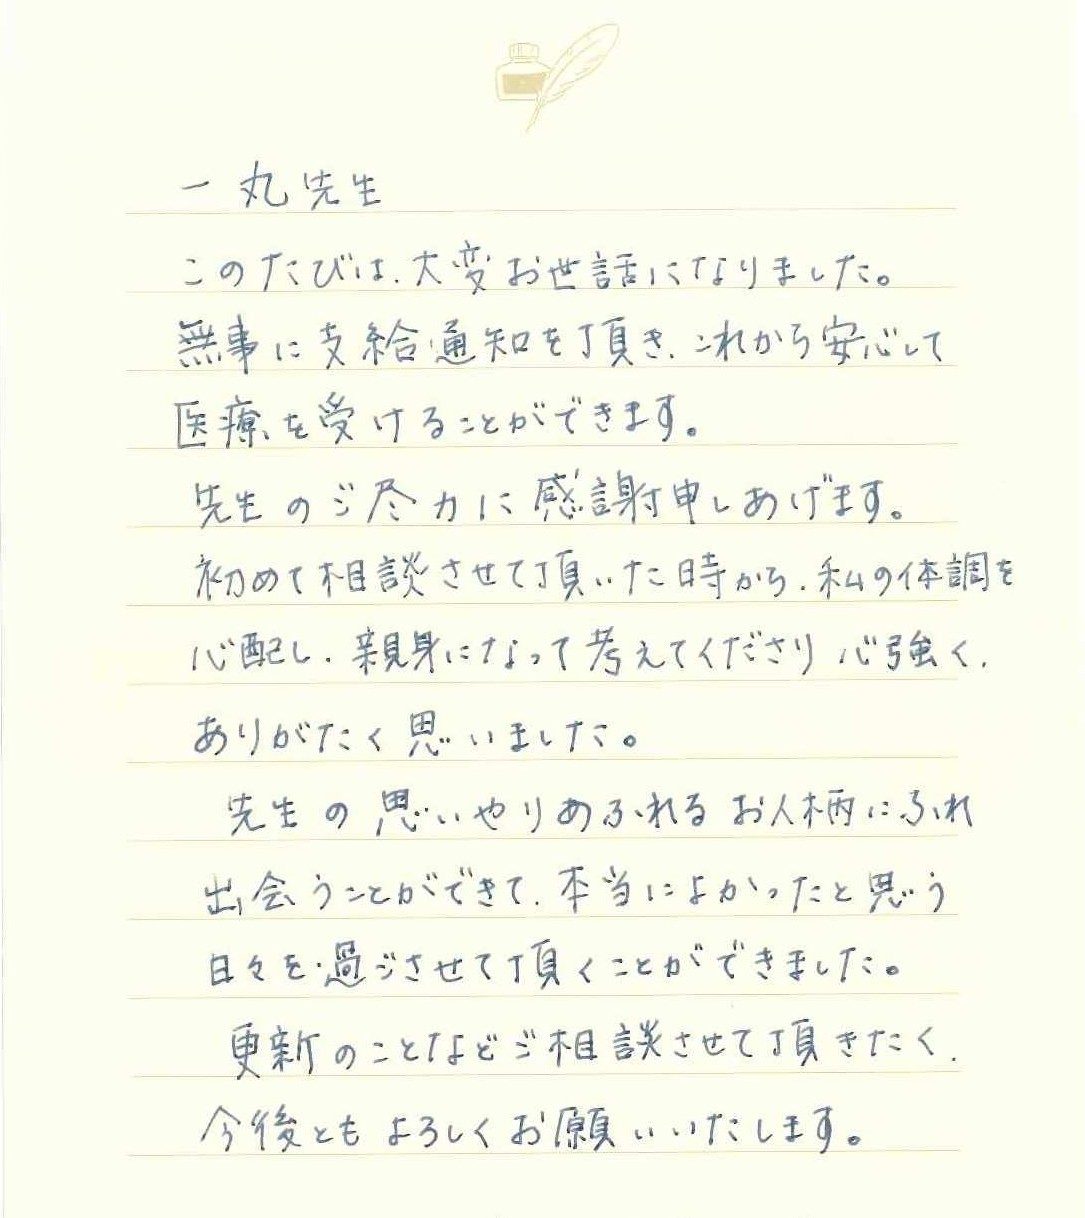 一丸先生
このたびは、大変お世話になりました。
無事に支給通知を頂き、これから安心して
医療を受けることができます。
先生のご尽力に感謝申しあげます。
初めて相談させて頂いた時から、私の体調を
心配し、親身になって考えてくださり心強く、
ありがたく思いました。
先生の思いやりあふれるお人柄にふれ
出会うことができて、本当によかったと思う
日々を過ごさせて頂くことができました。
更新のことなどご相談させて頂きたく、
今後ともよろしくお願いいたします。